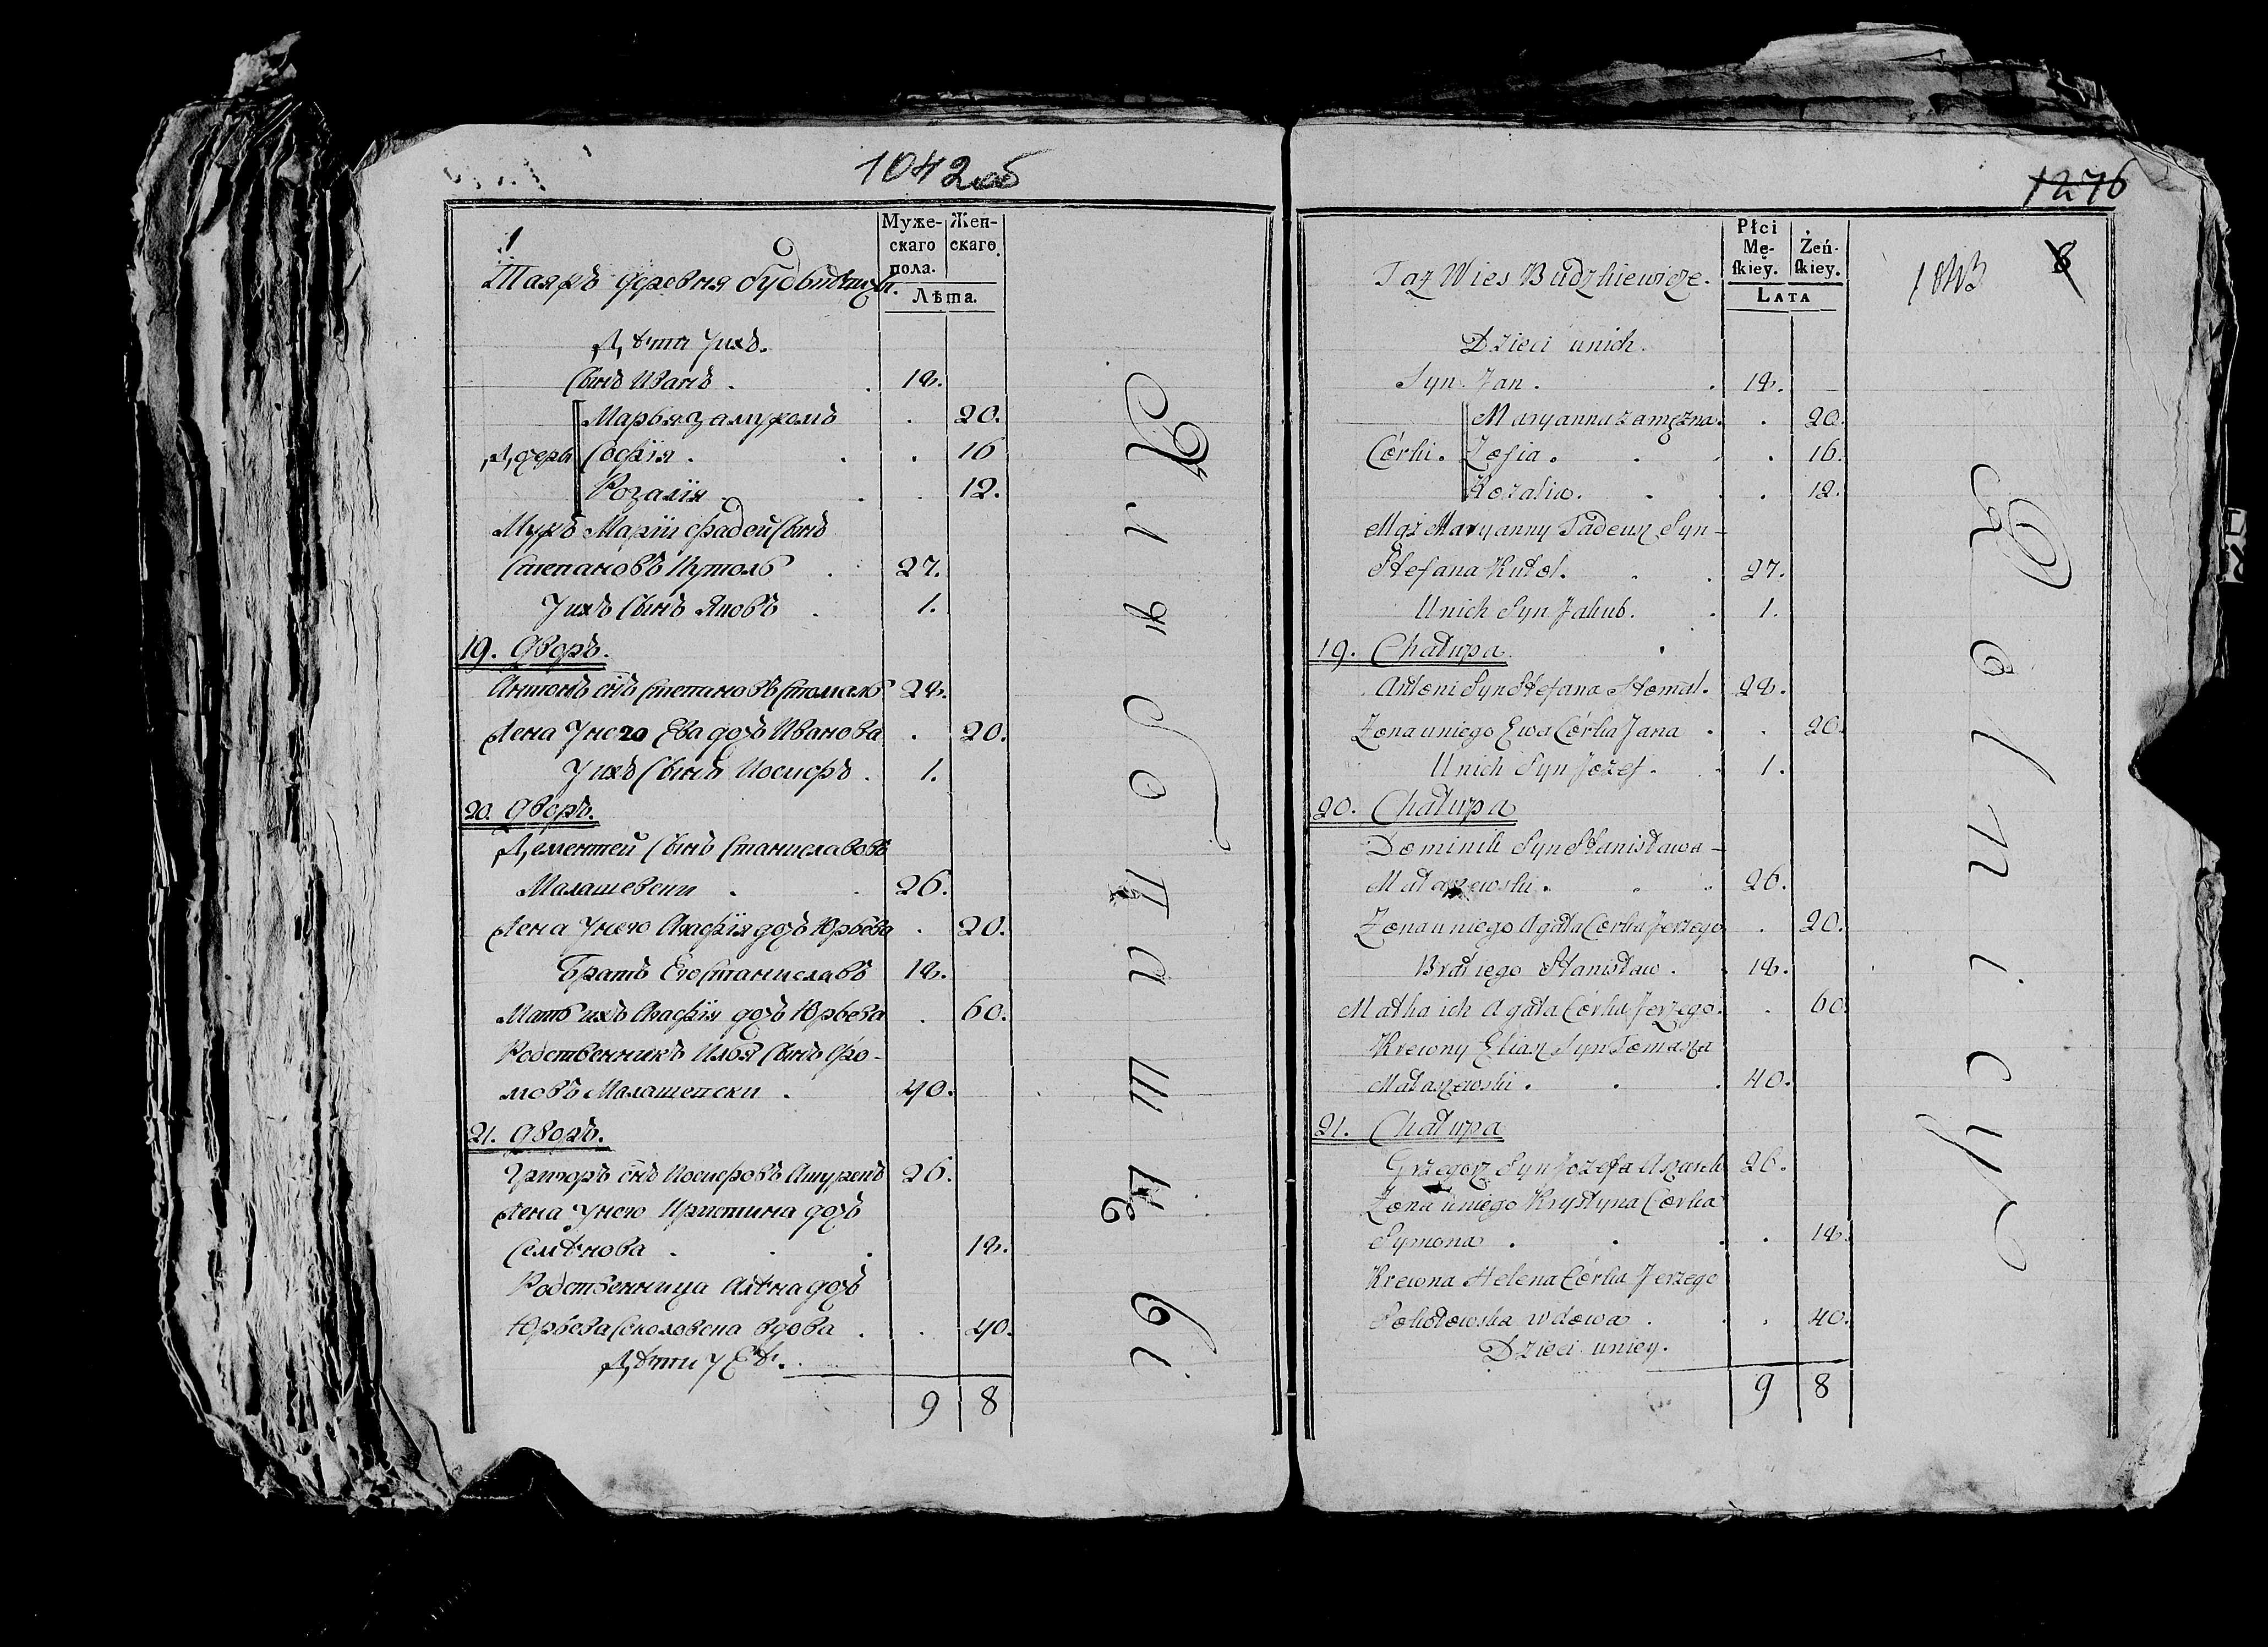 1042 об
Муже-
скаго
пола.
Жен-
скаго.
Лѣта.
Таяжъ деревня
Дѣти Ихъ.
Сынъ Иванъ . . 18.
Марья замужомъ . 20.
Дочери Софія . . . 16
Розалія . . . 12.
Мужъ Маріи Фадей Сынъ
Степановъ Куполь . 27.
У ихъ Сынъ Яковъ . 1.
19. Дворъ.
Антонъ сн͠ъ Степановъ Стомаль 28.
Жена У него Ева дочь Иванова . 20.
У ихъ Сынъ Иосифъ . 1.
20. Дворъ.
Дементей Сынъ Станиславовъ
Малашевски . . 26.
Жена У него Агафія дочь Юрьева . 20.
Братъ Его Станиславъ 18.
Мать ихъ Агафія дочь Юрьева . 60.
Родственникъ Илья Сынъ Фо-
мовъ Малашевски . 40.
21. Дворъ.
Григоръ сн͠ъ Иосифовъ 26.
Жена У него Кристина дочь
Семѣнова . . . 18.
Родственница Алѣна дочь
Юрьева Соколовска вдова . . 40.
Дѣти У Еѣ.
9 8
1276
8
1043
Płci
Mę-
skiey.
Żeń-
skiey.
LATA
Taż Wies Budzkiewicze.
Dzieci unich.
Syn Jan . . 18.
Maryanna zamęzna . . 20.
Córki . Zofia . . . . 16.
Rozalia . . . . 12.
Mąż Maryanny Tadeusz Syn -
Stefana Kutol . . . 27.
Unich Syn Jakub . . 1.
19. Chałupa
Antoni Syn Stefana Stomal . 28.
Zona uniego Ewa Córka Jana . . 20.
Unich Syn Jozef . . 1.
20. Chałupa
Dominik Syn Stanisława -
Małaszewski . . . 26.
Zona uniego Agata Córka Jerzego . 20.
Brat iego Stanisław . . 18.
Matka ich Agata Córka Jerzego . . 60.
Krewny Eliasz Syn Tomasza
Małaszewski . . . 40.
21. Chałupa
Grzegorz Syn Jozefa 26.
Zona uniego Krystyna Córka
Symona . . . . 18.
Krewna Helena Córka Jerzego
Sokołowska wdowa . . . 40.
Dzieci uniey.
9 8
R o l n i c y